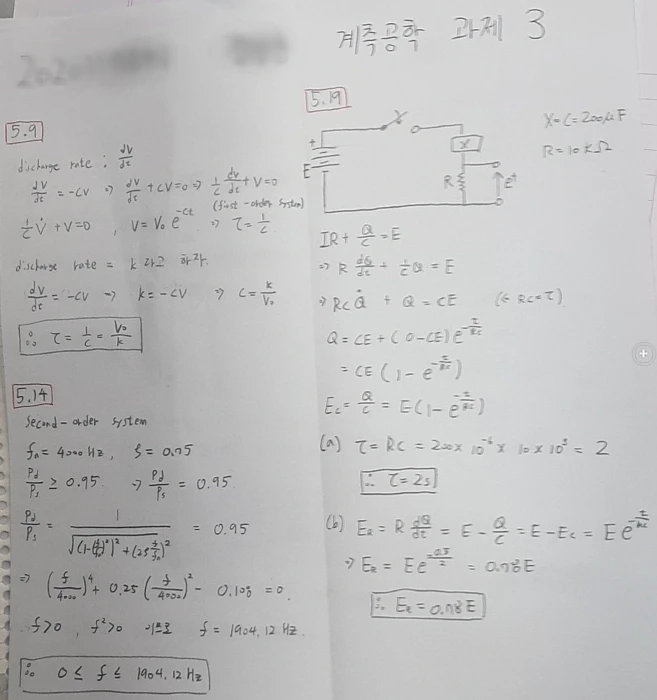 계측공학 과제 3
5.9
discharge rate : dV/dt
dV/dt = -cV ⇒ dV/dt + cV=0 ⇒ 1/c dV/dt + V=0
(first-order system)
1/c V̇ + V=0 , V= V₀ e^-ct ⇒ τ = 1/c
discharge rate = k 라고 하자.
dV/dt = -cV → k = -cV ⇒ c = k/V₀
∴ τ = 1/c = V₀/k
5.14
Second-order system
fₙ = 4000 Hz, ζ = 0.75
Pd/Ps ≥ 0.95. ⇒ Pd/Ps = 0.95
Pd/Ps = 1/√((1-(f/fₙ)²)²+(2ζ f/fₙ)²) = 0.95
⇒ (f/4000)⁴ + 0.25 (f/4000)² - 0.108 = 0.
f>0 , f²>0 이므로 f = 1904.12 Hz.
∴ 0 ≤ f ≤ 1904.12 Hz
5.19
X=C=200μF
R=10kΩ
+
E
X
R
IR + Q/C = E
⇒ R dQ/dt + 1/C Q = E
⇒ RC Q̇ + Q = CE (← RC=τ)
Q = CE + (0-CE) e^-t/RC
= CE (1 - e^-t/RC)
Ec = Q/C = E(1 - e^-t/RC)
(a) τ = RC = 200 × 10⁻⁶ × 10 × 10³ = 2
∴ τ = 2s
(b) E_R = R dQ/dt = E - Q/C = E - Ec = E e^-t/RC
⇒ E_R = E e^-0.5/2 = 0.78E
∴ E_R = 0.78E